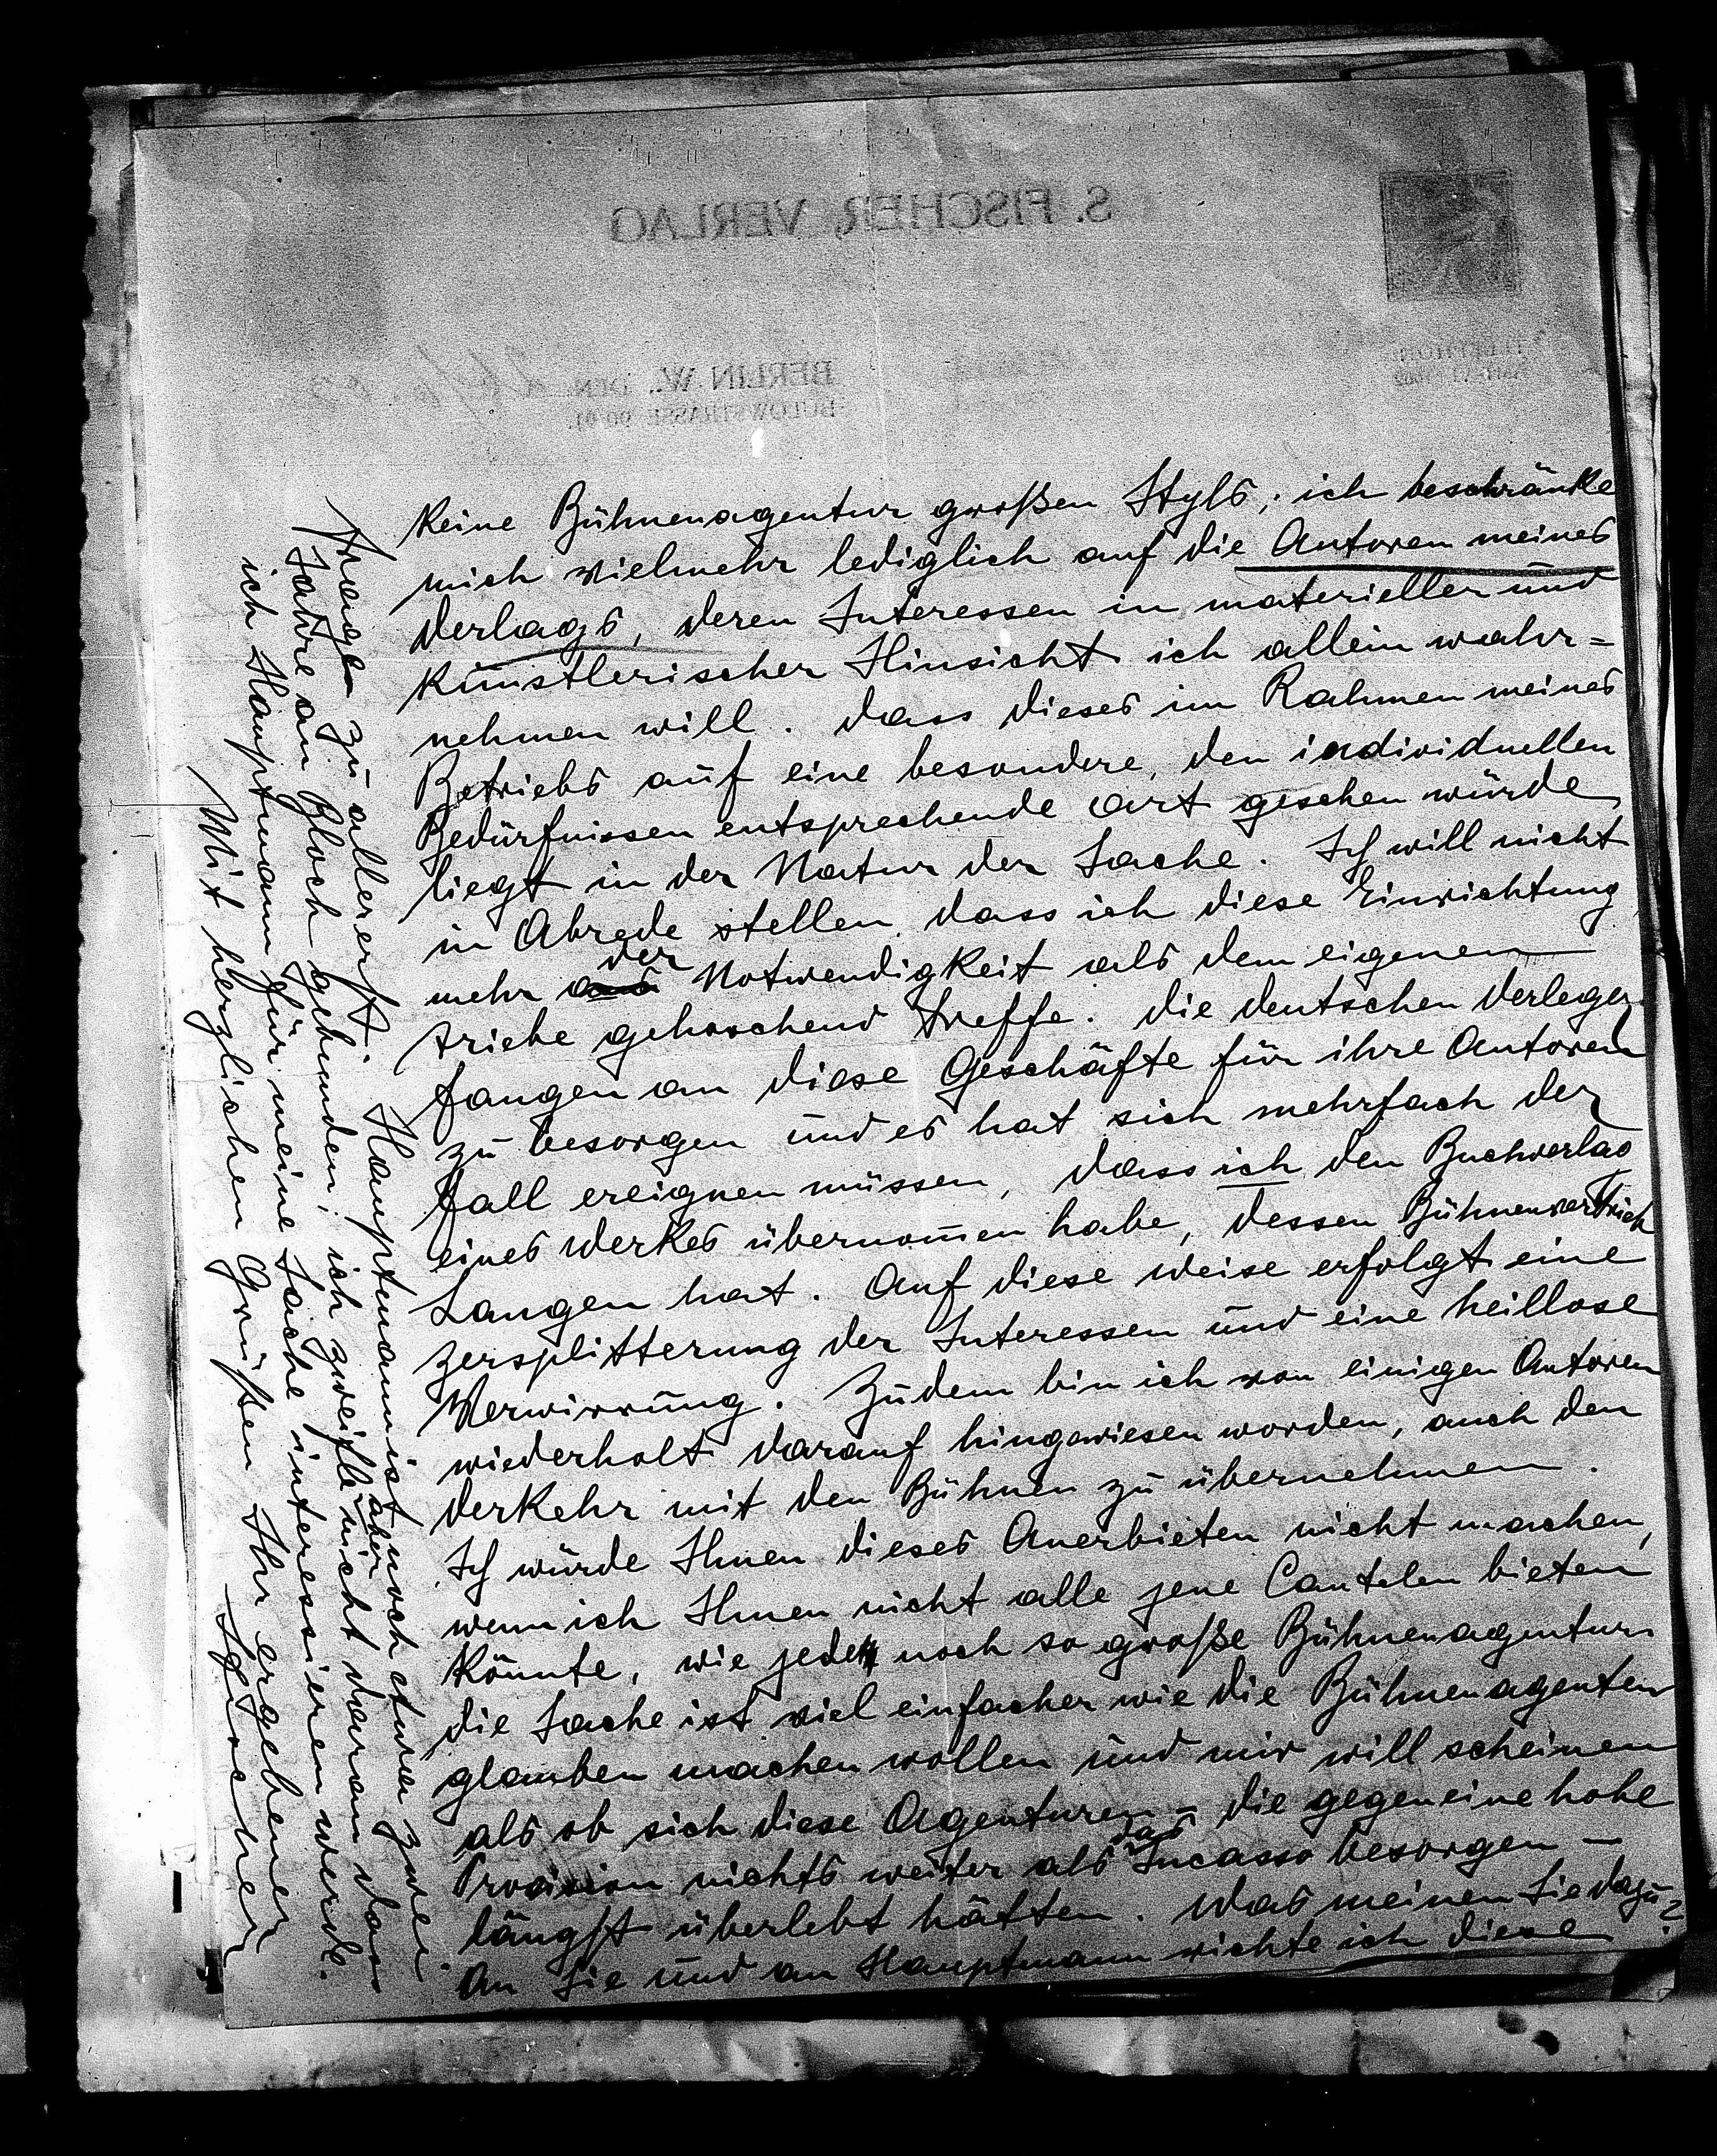 S. FISCHER, VERLAG
BERLIN W., DEN
BÜLOWSTRASSE 90/91.
keine Bühnenagentur großen Styls; ich beschränke
mich vielmehr lediglich auf die Autoren meines
Verlags, deren Interessen in materieller und
künstlerischer Hinsicht ich allein wahr=
nehmen will. Dass dieses im Rahmen meines
Betriebs auf eine besondere, den individuellen
Bedürfnissen entsprechende Art geschen würde,
liegt in der Natur der Sache. Ich will nicht
in Abrede stellen, dass ich diese Einrichtung
mehr der Notwendigkeit als dem eigenen
Triebe gehorchend treffe. Die deutschen Verleger
fangen an diese Geschäfte für ihre Autoren
zu besorgen und es hat sich mehrfach der
Fall ereignen müssen, dass ich den Buchverlag
eines Werkes übernom̄en habe, dessen Bühnenvertrieb
Langen hat. Auf diese Weise erfolgt eine
Zersplitterung der Interessen und eine heillose
Verwirrung. Zudem bin ich von einigen Autoren
wiederholt darauf hingewiesen worden, auch den
Verkehr mit den Bühnen zu übernehmen.
Ich würde Ihnen dieses Anerbieten nicht machen,
wenn ich Ihnen nicht alle jene Cautelen bieten
könnte, wie jede noch so große Bühnenagentur.
Die Sache ist viel einfacher wie die Bühnenagenten
glauben machen wollen und mir will scheinen
als ob sich diese Agenturen – die gegen eine hohe
Provision nichts weiter als das Incasso besorgen –
längst überlebt hätten. Was meinen Sie dazu?
An Sie und an Hauptmann richte ich diese
Fragen zu allererst. Hauptmann ist noch etwa zwei
Jahre an Bloch gebunden; ich zweifle aber nicht daran dass
ich Hauptmann für meine Sache interessieren werde.
Mit herzlichen Grüßen Ihr ergebener
SFischer